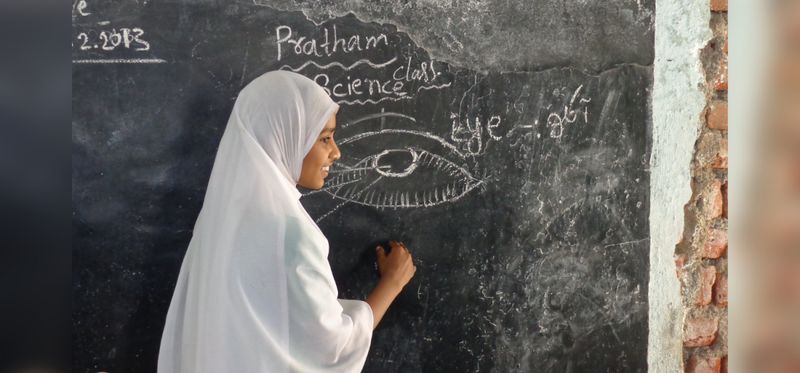 e
.2.2013
Pratham
Science class.
Eye -: